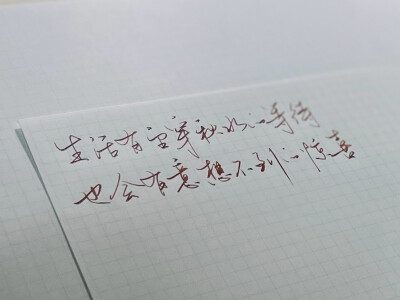 生活有望穿秋水的等待
也会有意想不到的惊喜